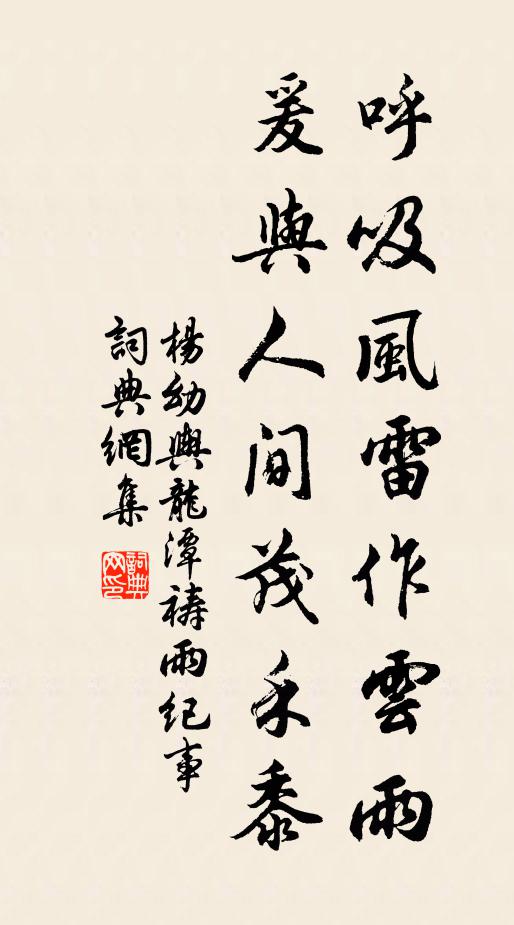 呼吸風雷作雲雨
爰與人間茂禾黍
楊幼輿龍潭禱雨纪事
詞典網集
詞典
网印